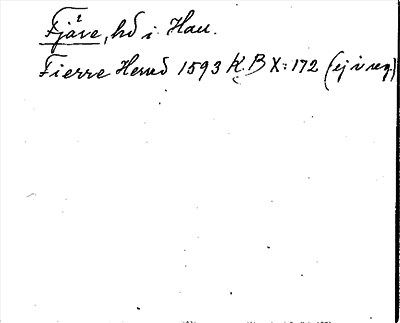 Fjäre, hd i Hall.
Fierre Herred 1593 K.B X: 172 (ej i reg)